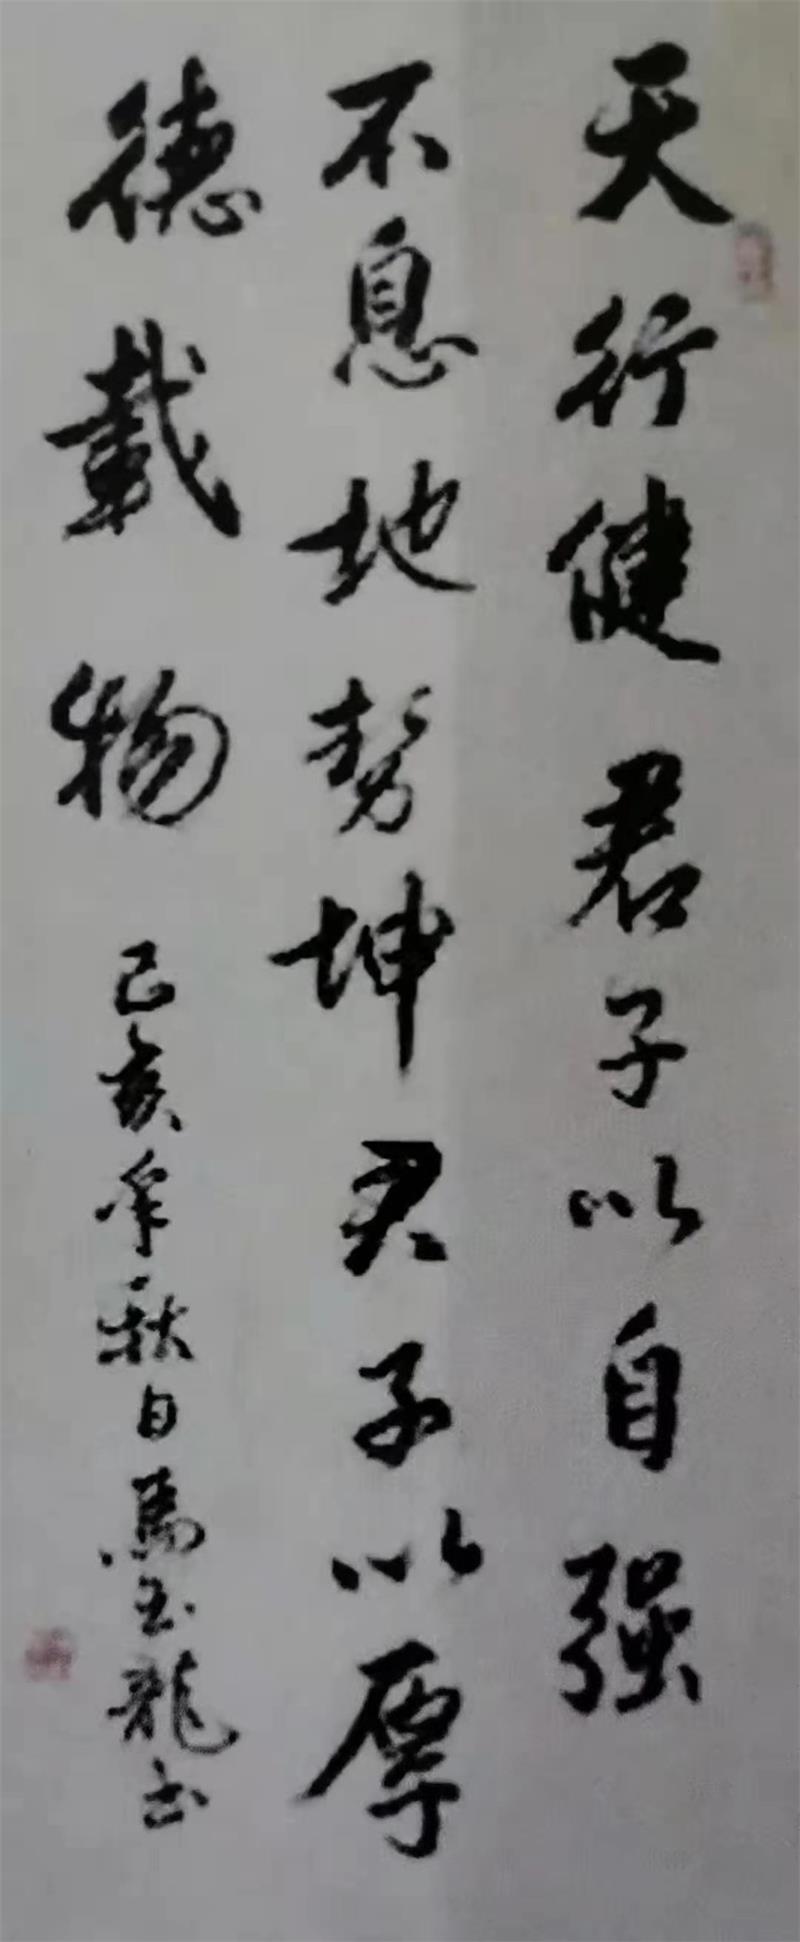 天行健君子以自强
不息地势坤君子以厚
德載物
己亥年秋日馬玉龍书